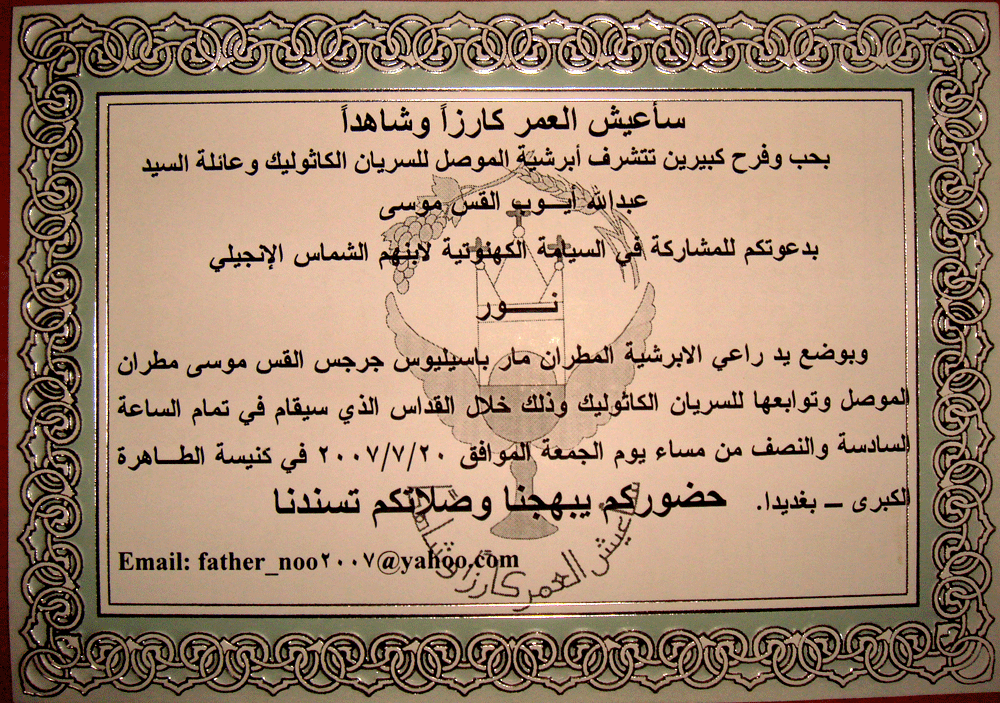 سأعيش العمر كارزاً وشاهداً
بحب وفرح كبيرين تتشرف أبرشية الموصل للسريان الكاثوليك وعائلة السيد
عبدالله أيـــوب القس موسى
بدعوتكم للمشاركة في السيامة الكهنوتية لابنهم الشماس الإنجيلي
نـــــور
وبوضع يد راعي الابرشية المطران مار باسيليوس جرجس القس موسى مطران
الموصل وتوابعها للسريان الكاثوليك وذلك خلال القداس الذي سيقام في تمام الساعة
السادسة والنصف من مساء يوم الجمعة الموافق ٢٠٠٧/٧/٢٠ في كنيسة الطـــاهرة
الكبرى ــ بغديدا. حضوركم يبهجنا وصلاتكم تسندنا
Email: father_noo٢٠٠٧@yahoo.com
اعيش العمر كارزاً وشاهد